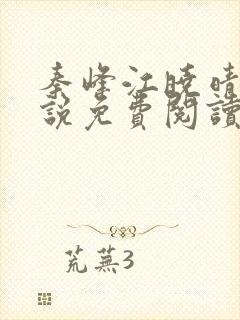 秦峰江曉晴
說免費閱讀
荒蕪3